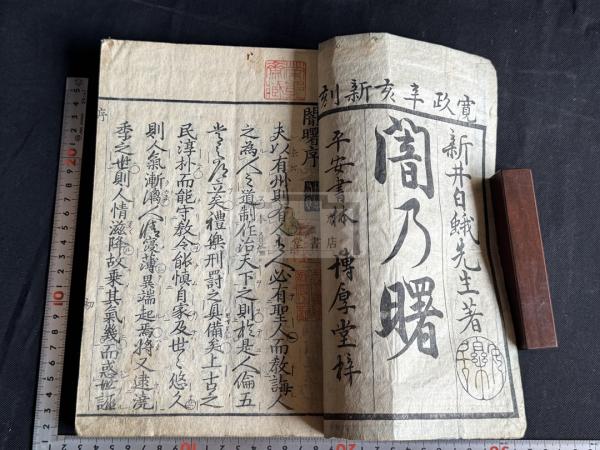 寛政辛亥新刻
新井白蛾先生著
闇乃曙
平安書林 博厚堂梓
闇曙序
夫以有州則有人有人必有聖人而教誨人
之為人之道制作治天下之則於是人倫五
立矣禮樂刑罰之具備矣上古之
民淳朴而能守教令能慎自家及世之悠久
則人氣漸漓人情薄異端起焉將又逮澆
季之世則人情滋降故乘其氣幾而惑世誣
序
堂書店
10
20